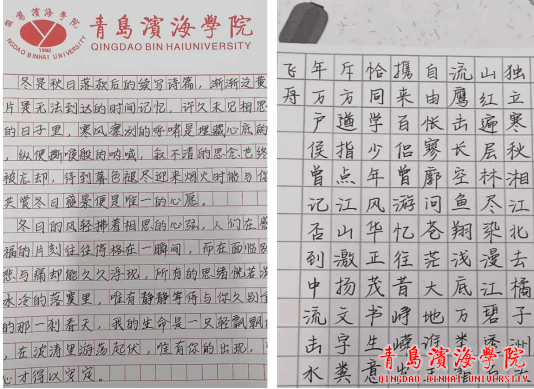 青島濱海學院
QINGDAO BINHAI UNIVERSITY
1992
青島濱海學院
QINGDAO BIN HAIUNIVERSITY
冬是秋日落秋后的续写诗篇，渐渐泛黄
片是无法到达的时间记忆，许久未见相思
的日子里，寒风凛冽的呼啸是埋藏心底的
，纵使撕喉般的呐喊，叙不清的思念也终
被忘却，得到暮色褪尽迎来烟火时能与你
共赏冬日盛景便是唯一的心愿。
冬日的风轻拂着相思的心弦，人们在感
福的片刻往往停格在一瞬间，而在面临别
悲与痛却能久久浮现，所有的思绪恍若
冰冷的寂寞里，唯有静静等待与你久别
的那一刹春天，我的生命是一只轻飘飘
，在波涛里海荡起伏，唯有你的出现，
心才得以安定。
独立寒秋湘江北去橘子洲
山红遍层林尽染漫江碧透
流鹰击长空鱼翔浅底万类
自由怅寥廓问苍茫大地谁
携来百侣曾游忆往昔峥嵘
恰同学少年风华正茂书生意
斥方遒指点江山激扬文字粪
年万户侯曾记否到中流击水
飞舟
青島濱海學院